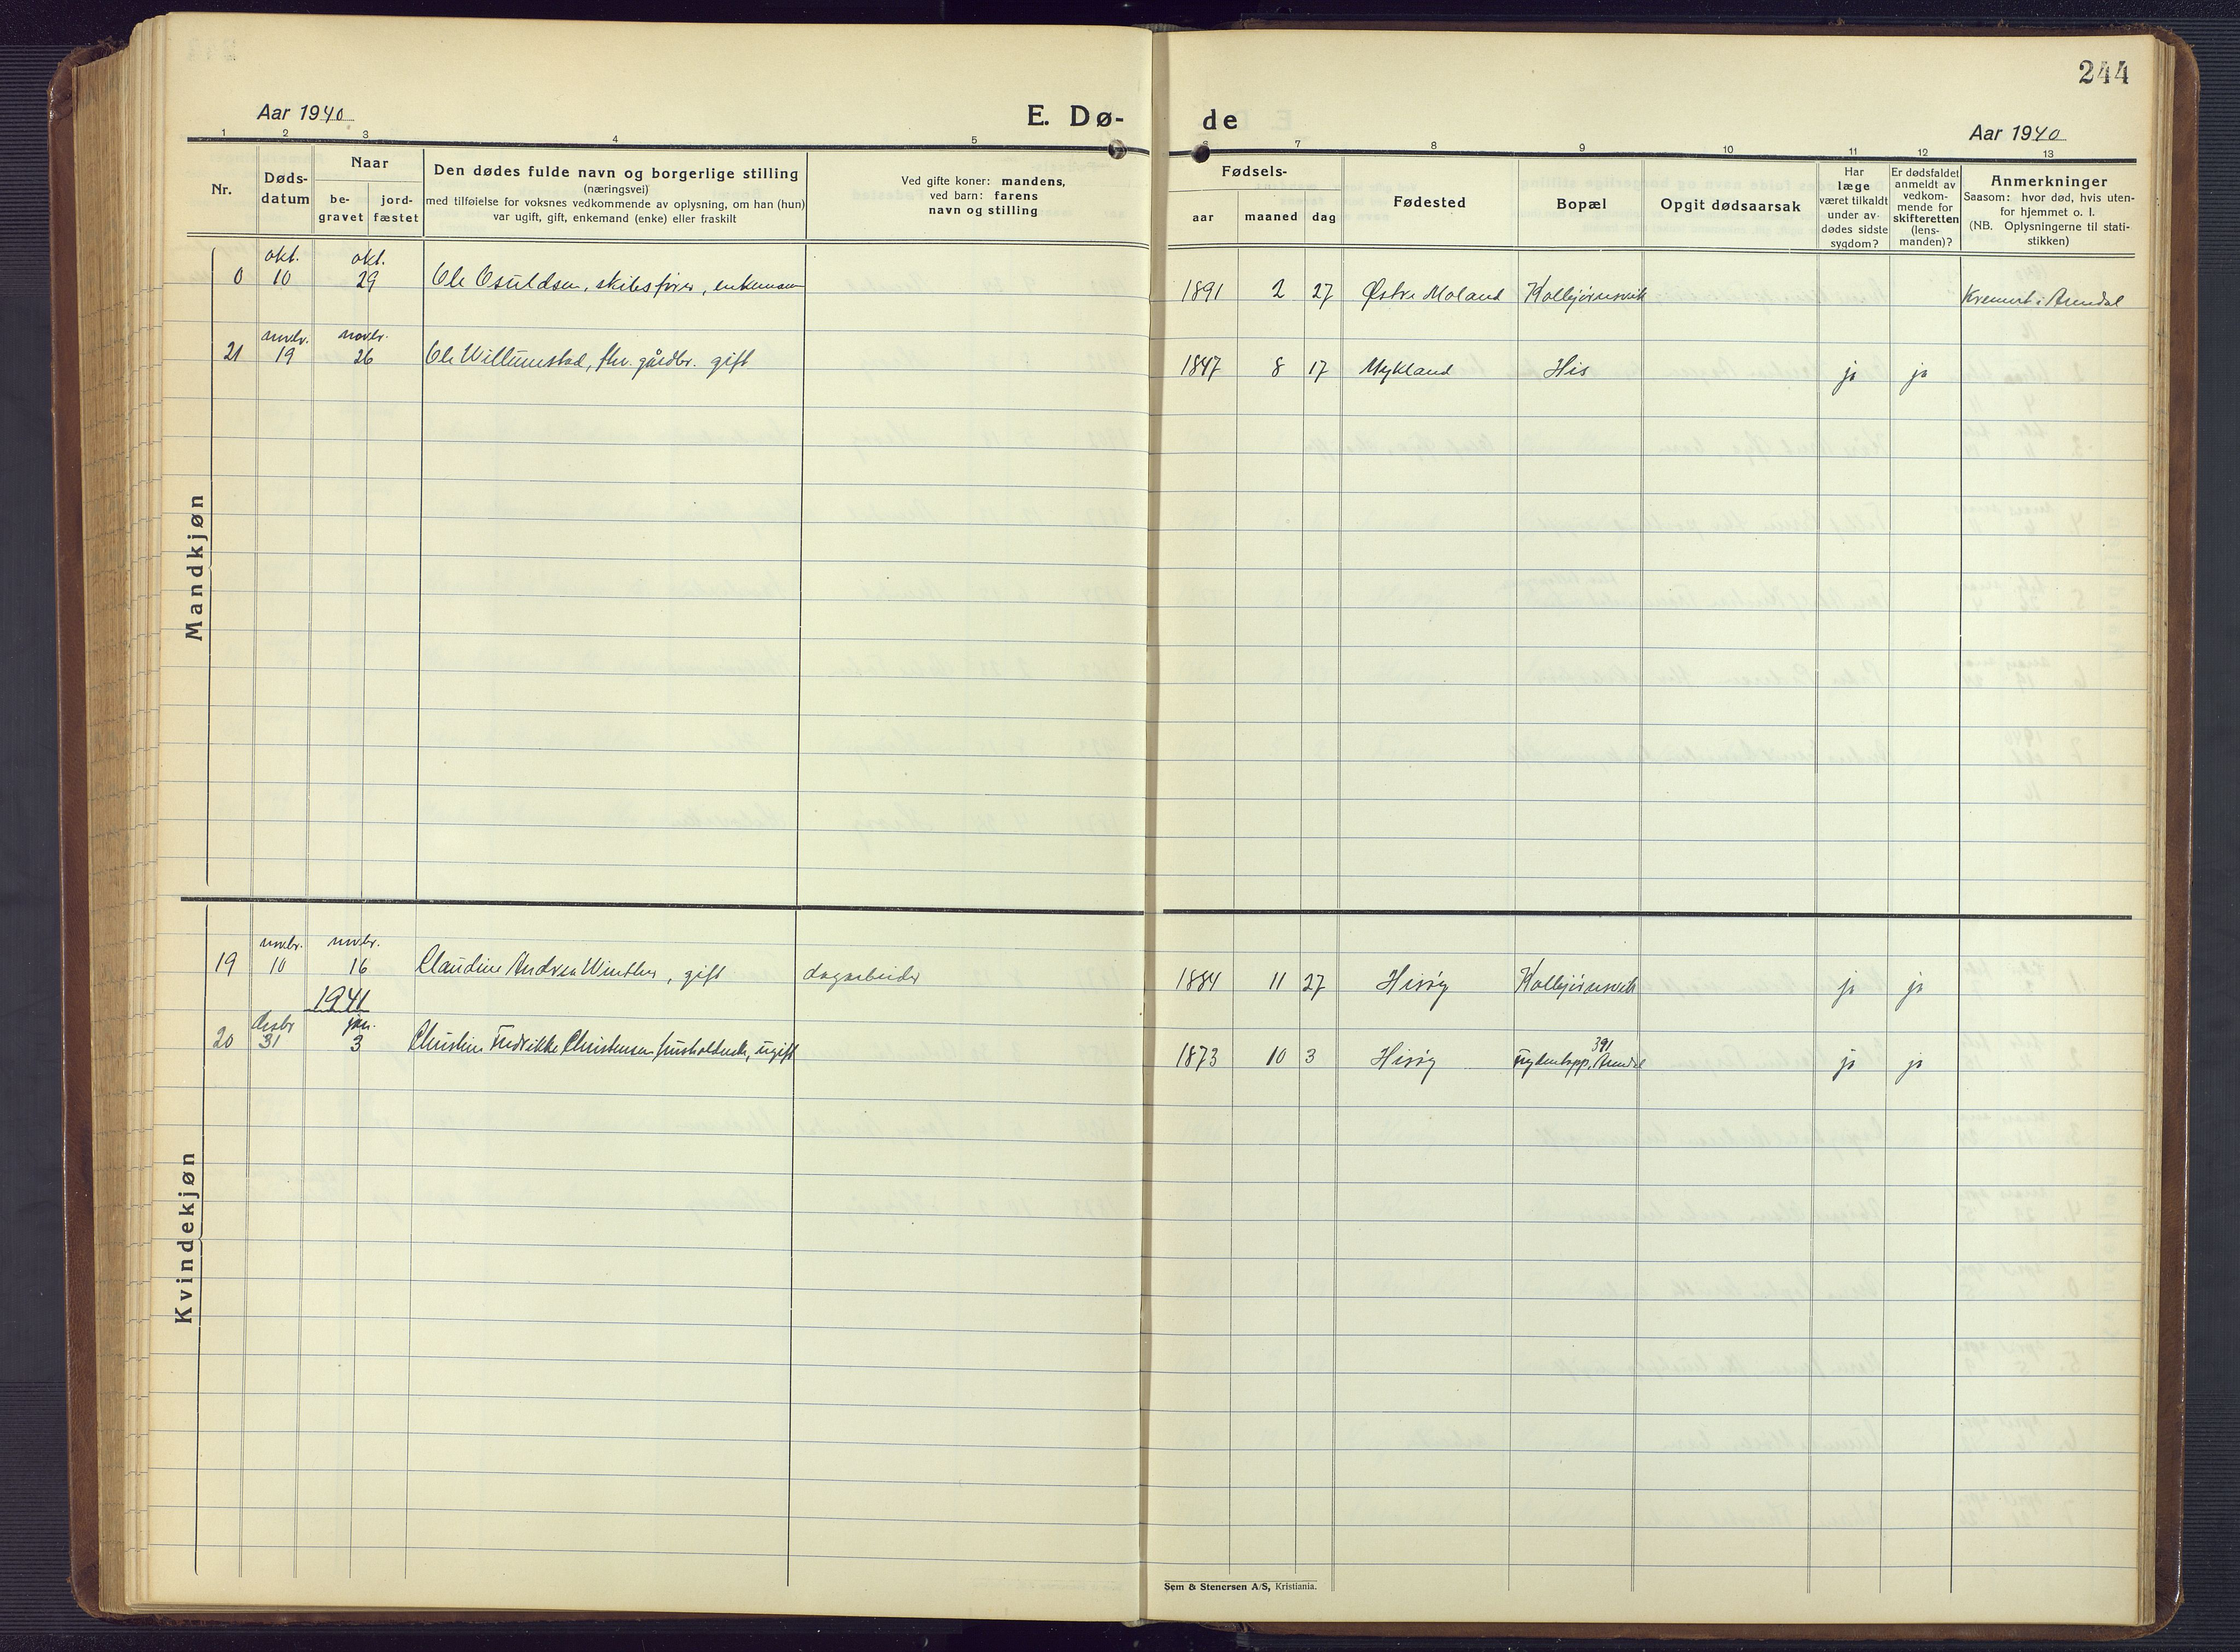 244
Aar 1940
E. Dø-
de
Aar 1940
1 2 3 4 5 6 7 8 9 10 11 12 13
Nr.
Døds-
datum
Naar
be-
gravet
jord-
fæstet
Den dødes fulde navn og borgerlige stilling
(næringsvei)
med tilføielse for voksnes vedkommende av oplysning, om han (hun)
var ugift, gift, enkemand (enke) eller fraskilt
Ved gifte koner: mandens,
ved barn: farens
navn og stilling
Fødsels-
aar
maaned
dag
Fødested
Bopæl
Opgit dødsaarsak
Har
læge
været tilkaldt
under av-
dødes sidste
sygdom?
Er dødsfaldet
anmeldt av
vedkom-
mende for
skifteretten
(lens-
manden)?
Anmerkninger
Saasom: hvor død, hvis uten-
for hjemmet o. l.
(NB. Oplysningerne til stati-
stikken)
Mandkjøn
okt. okt.
0 10 29 Ole Osuldsen, skibsfører, enkemann 1891 2 27 Østre Moland Kolbjørnsvik Kremert i Arendal
novbr. novbr.
21 19 26 Ole Willumstad, fhv. gårdbr. gift 1847 8 17 Mykland His ja ja
Kvindekjøn
novbr. novbr.
19 10 16 Claudine Andrea Winther, gift dagarbeider 1884 11 27 Hisøy Kolbjørnsvik ja ja
1941
desbr jan.
20 31 3 Christine Fredrikke Christensen, ugift 1873 10 3 Hisøy 391 Arendal ja ja
Sem & Stenersen A/S, Kristiania.